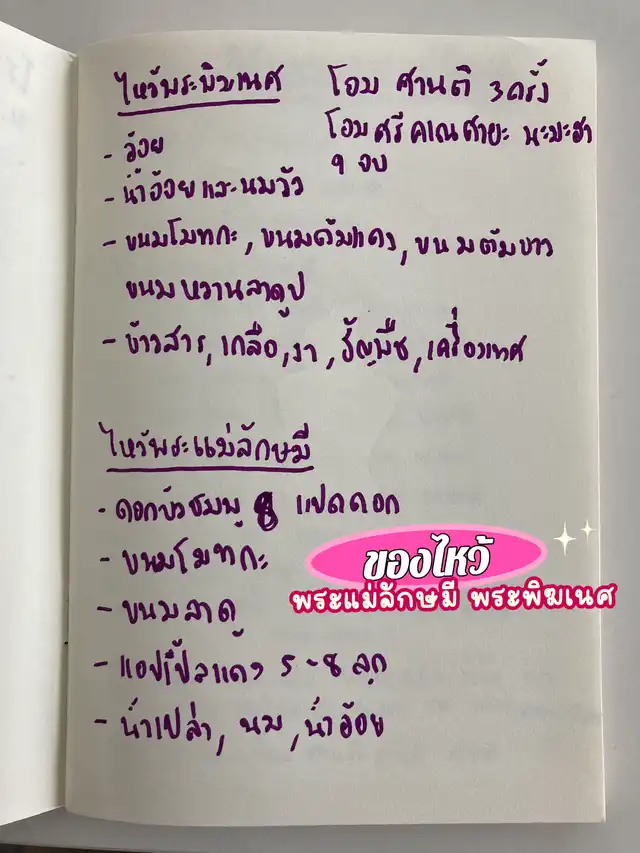 ไหว้พระพิฆเนศ
โอม ศานติ 3 ครั้ง
โอม ศรี คเณศายะ นะมะฮา
9 จบ
- อ้อย
- น้ำอ้อยและนมวัว
- ขนมโมทกะ, ขนมต้มแดง, ขนมต้มขาว
ขนมหวานลาดู
- ข้าวสาร, เกลือ, งา, ธัญพืช, เครื่องเทศ
ไหว้พระแม่ลักษมี
- ดอกบัวชมพู 8 แปดดอก
- ขนมโมทกะ
- ขนมลาดู
- แอปเปิ้ลแดง 5-8 ลูก
- น้ำเปล่า, นม, น้ำอ้อย
ของไหว้
พระแม่ลักษมี พระพิฆเนศ